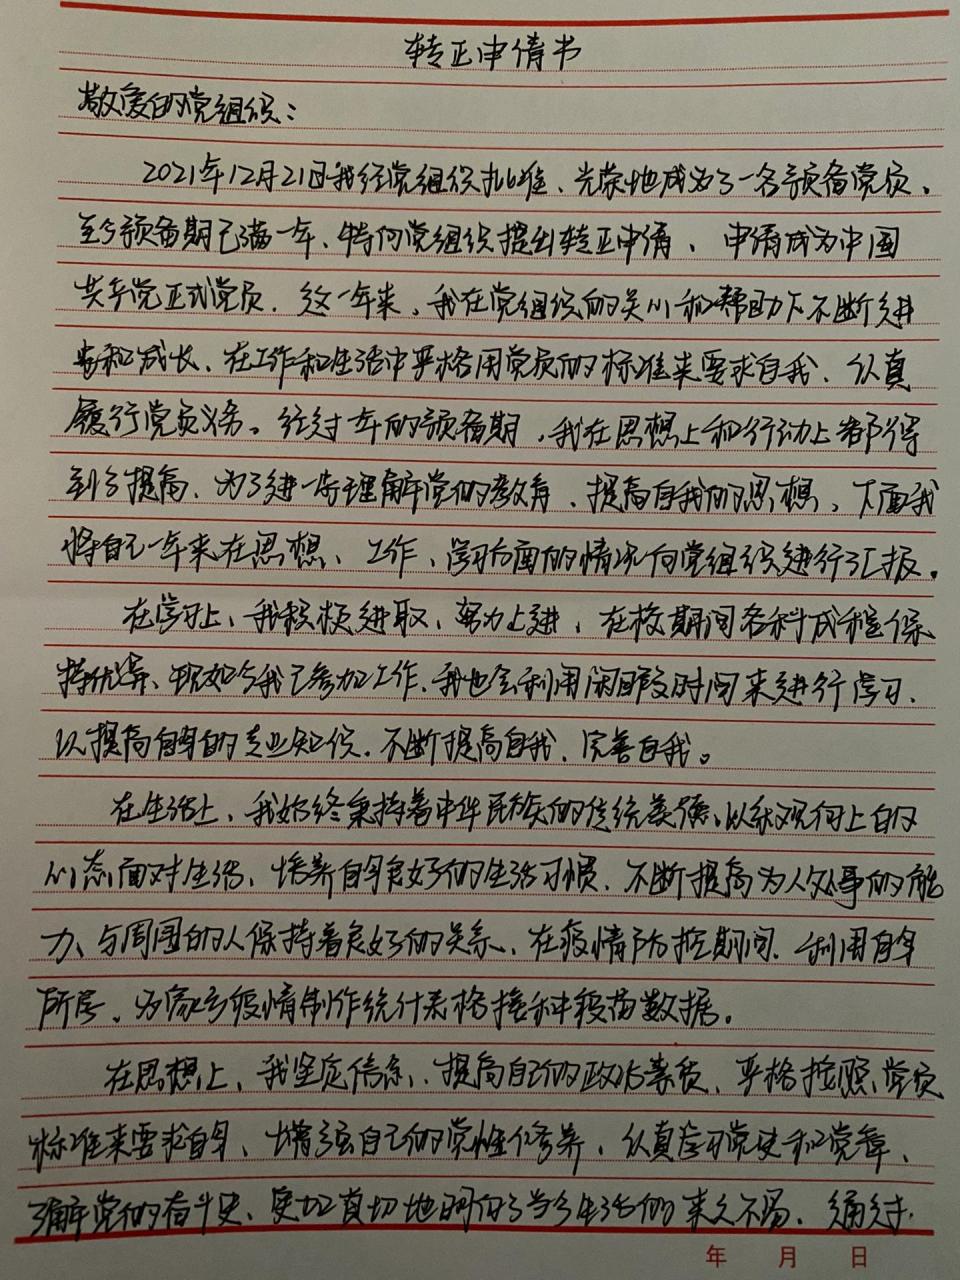 转正申请书
敬爱的党组织：
2021年12月21日我经党组织批准、光荣地成为了一名预备党员、
至今预备期已满一年、特向党组织提出转正申请、申请成为中国
共产党正式党员．这一年来，我在党组织的关心和帮助下不断进
步和成长、在工作和生活中严格用党员的标准来要求自我、认真
履行党员义务。经过一年的预备期，我在思想上和行动上都得
到了提高、为了进一步理解党的教育、提高自我的思想，下面我
将自己一年来在思想、工作、学习方面的情况向党组织进行汇报．
在学习上、我积极进取、努力上进，在校期间各科成绩保
持优异、现如今我已参加工作、我也会利用闲暇时间来进行学习．
以提高自身的专业知识．不断提高自我．完善自我。
在生活上，我始终秉持着中华民族的传统美德、以积观向上的
心态面对生活、培养自身良好的生活习惯．不断提高为人处事的能
力、与周围的人保持着良好的关系、在疫情防控期间．利用自身
所学、为家乡疫情制作统计表格接种疫苗数据。
在思想上、我坚定信念、提高自己的政治素质、严格按照党员
标准来要求自身、增强自己的党性修养、认真学习党史和党章、
了解党的奋斗史、更加真切地明白了当今生活的来之不易、通过
年 月 日